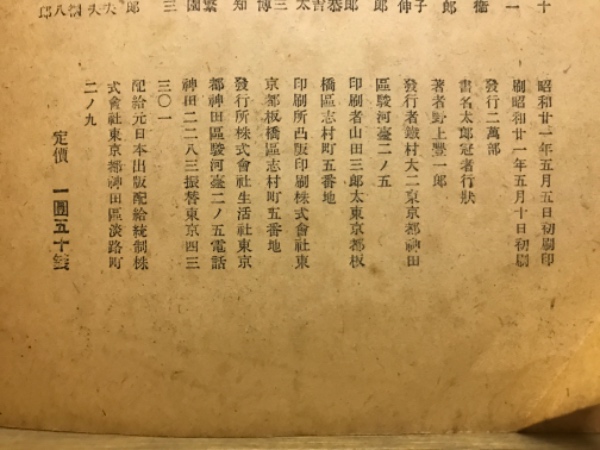 十
一
衞
郎
子
伸
郎
郎
恭
吉
太
三
博
知
園
繁
三
郎
八
郎
昭和廿一年五月五日初刷印
刷昭和廿一年五月十日初刷
發行二萬部
書名太郎冠者行狀
著者野上豐一郎
發行者鐵村大二東京都神田
區駿河臺二ノ五
印刷者山田三郎太東京都板
橋區志村町五番地
印刷所凸版印刷株式會社東
京都板橋區志村町五番地
發行所株式會社生活社東京
都神田區駿河臺二ノ五電話
神田二二八三振替東京四三
三〇一
配給元日本出版配給統制株
式會社東京都神田區淡路町
二ノ九
定價 一圓五十錢